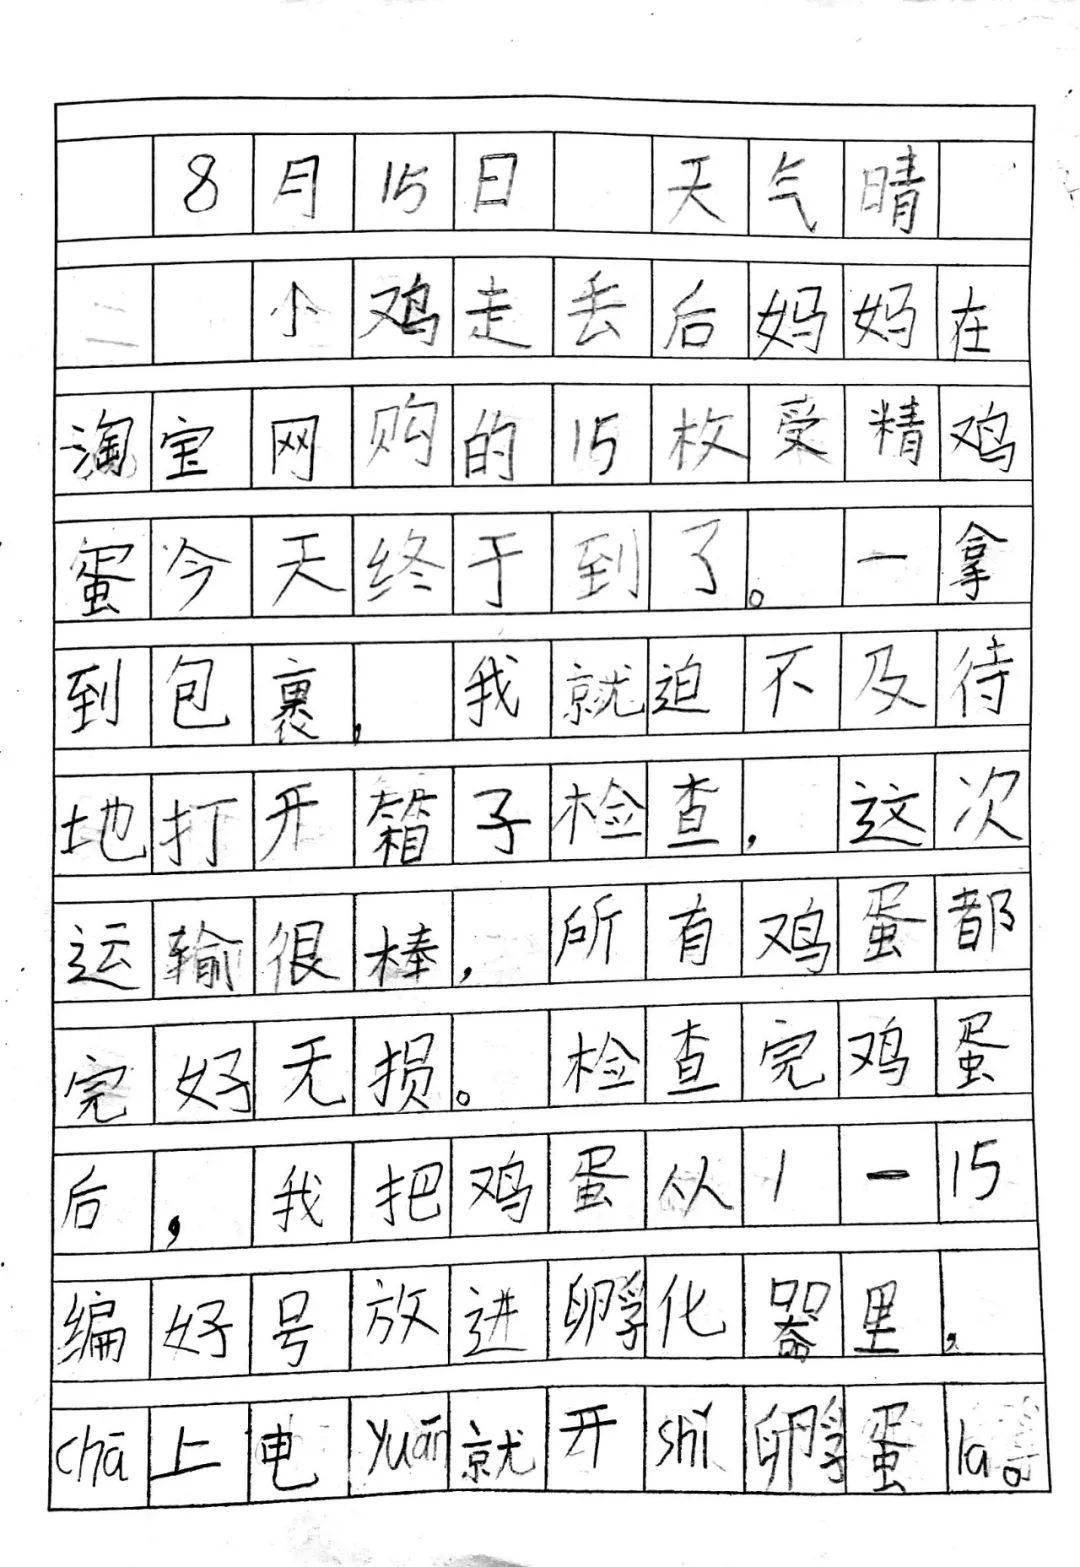 8月15日 天气晴
小鸡走丢后妈妈在
淘宝网购的15枚受精鸡
蛋今天终于到了。一拿
到包裹，我就迫不及待
地打开箱子检查，这次
运输很棒，所有鸡蛋都
完好无损。检查完鸡蛋
后，我把鸡蛋从1—15
编好号放进孵化器里，
chā上电yuán就开shǐ孵蛋la。